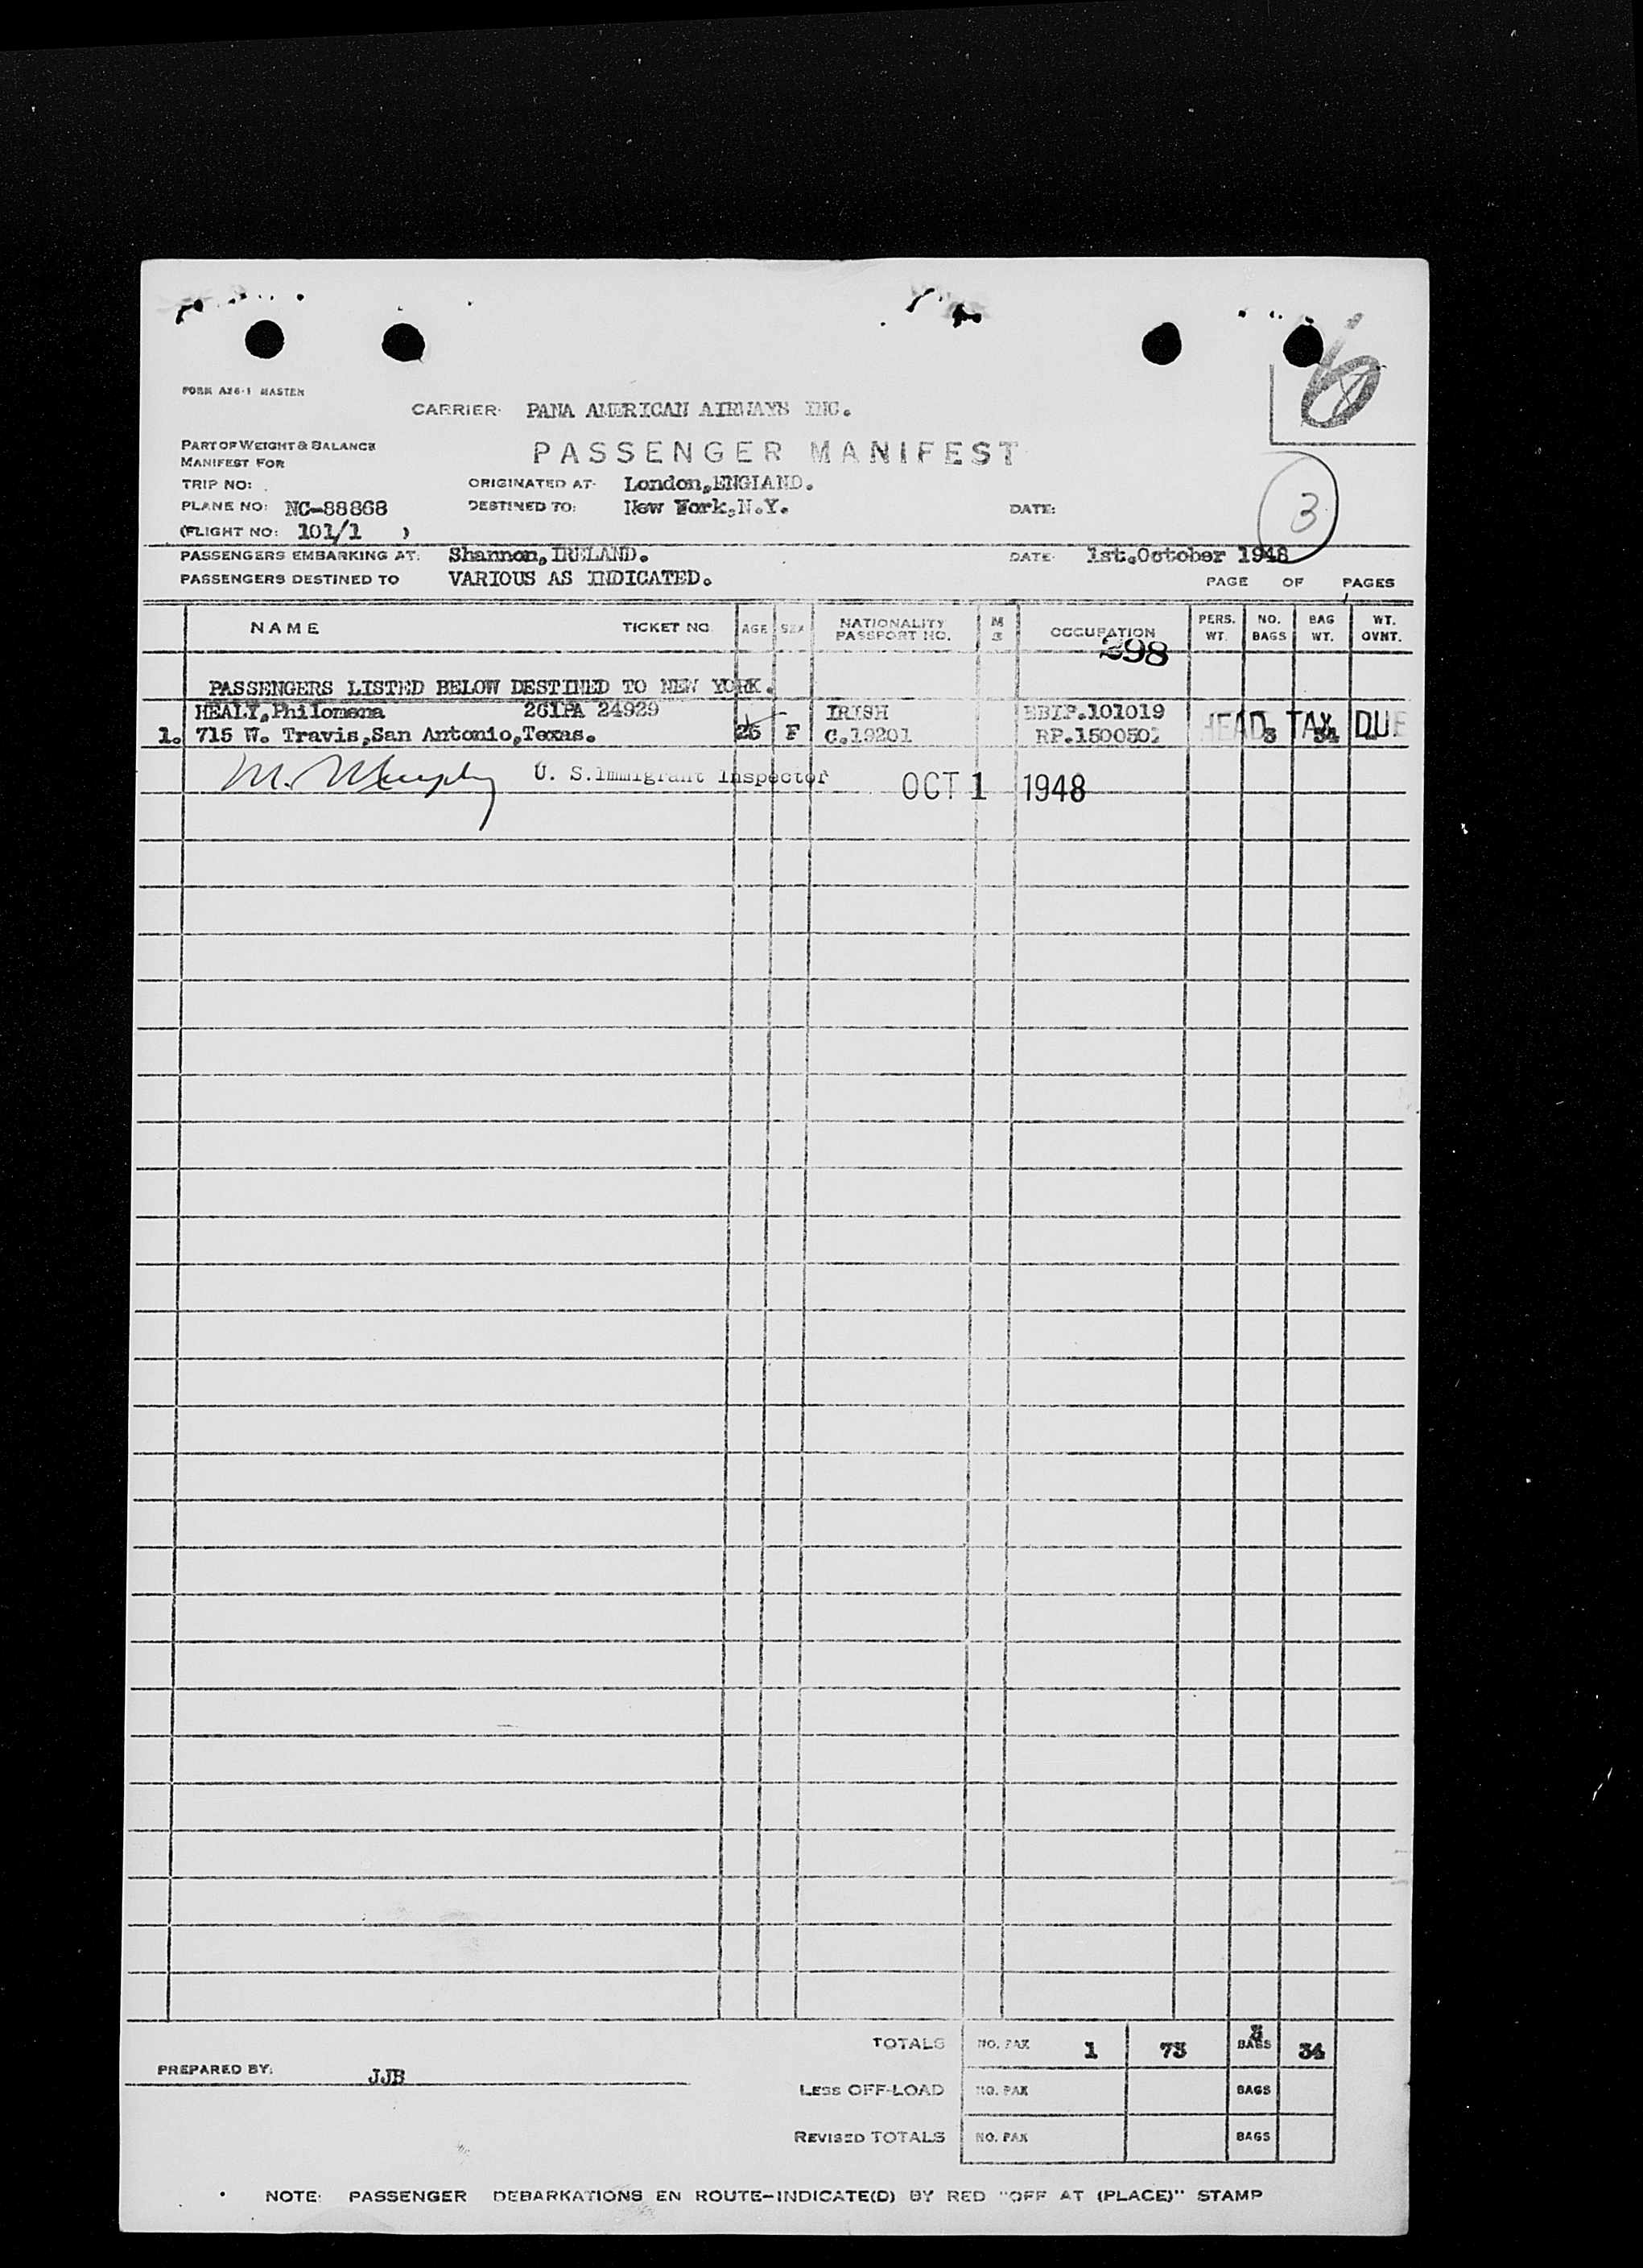 FORM A26-1 MASTER
CARRIER: PANA AMERICAN AIRWAYS INC.
PART OF WEIGHT & BALANCE
MANIFEST FOR
PASSENGER MANIFEST
TRIP NO:
ORIGINATED AT: London,ENGLAND.
PLANE NO: NC-88868
DESTINED TO: New York,N.Y.
DATE:
3
(FLIGHT NO: 101/1 )
PASSENGERS EMBARKING AT: Shannon,IRELAND.
DATE: 1st.October 1948
PASSENGERS DESTINED TO VARIOUS AS INDICATED.
PAGE OF PAGES
NAME TICKET NO. AGE SEX NATIONALITY PASSPORT NO. M S OCCUPATION PERS. WT. NO. BAGS BAG WT. WT. OVHT.
298
PASSENGERS LISTED BELOW DESTINED TO NEW YORK.
HEALY,Philomena 261PA 24929 IRISH EBIP.101019
1. 715 W. Travis,San Antonio,Texas. F C.19201 3 34
HEAD TAX DUE
M. Murphy U. S. Immigrant Inspector OCT 1 1948
TOTALS NO. PAX 1 73 3 BAGS 34
PREPARED BY: JJB
LESS OFF-LOAD NO. PAX BAGS
REVISED TOTALS NO. PAX BAGS
NOTE: PASSENGER DEBARKATIONS EN ROUTE-INDICATE(D) BY RED "OFF AT (PLACE)" STAMP